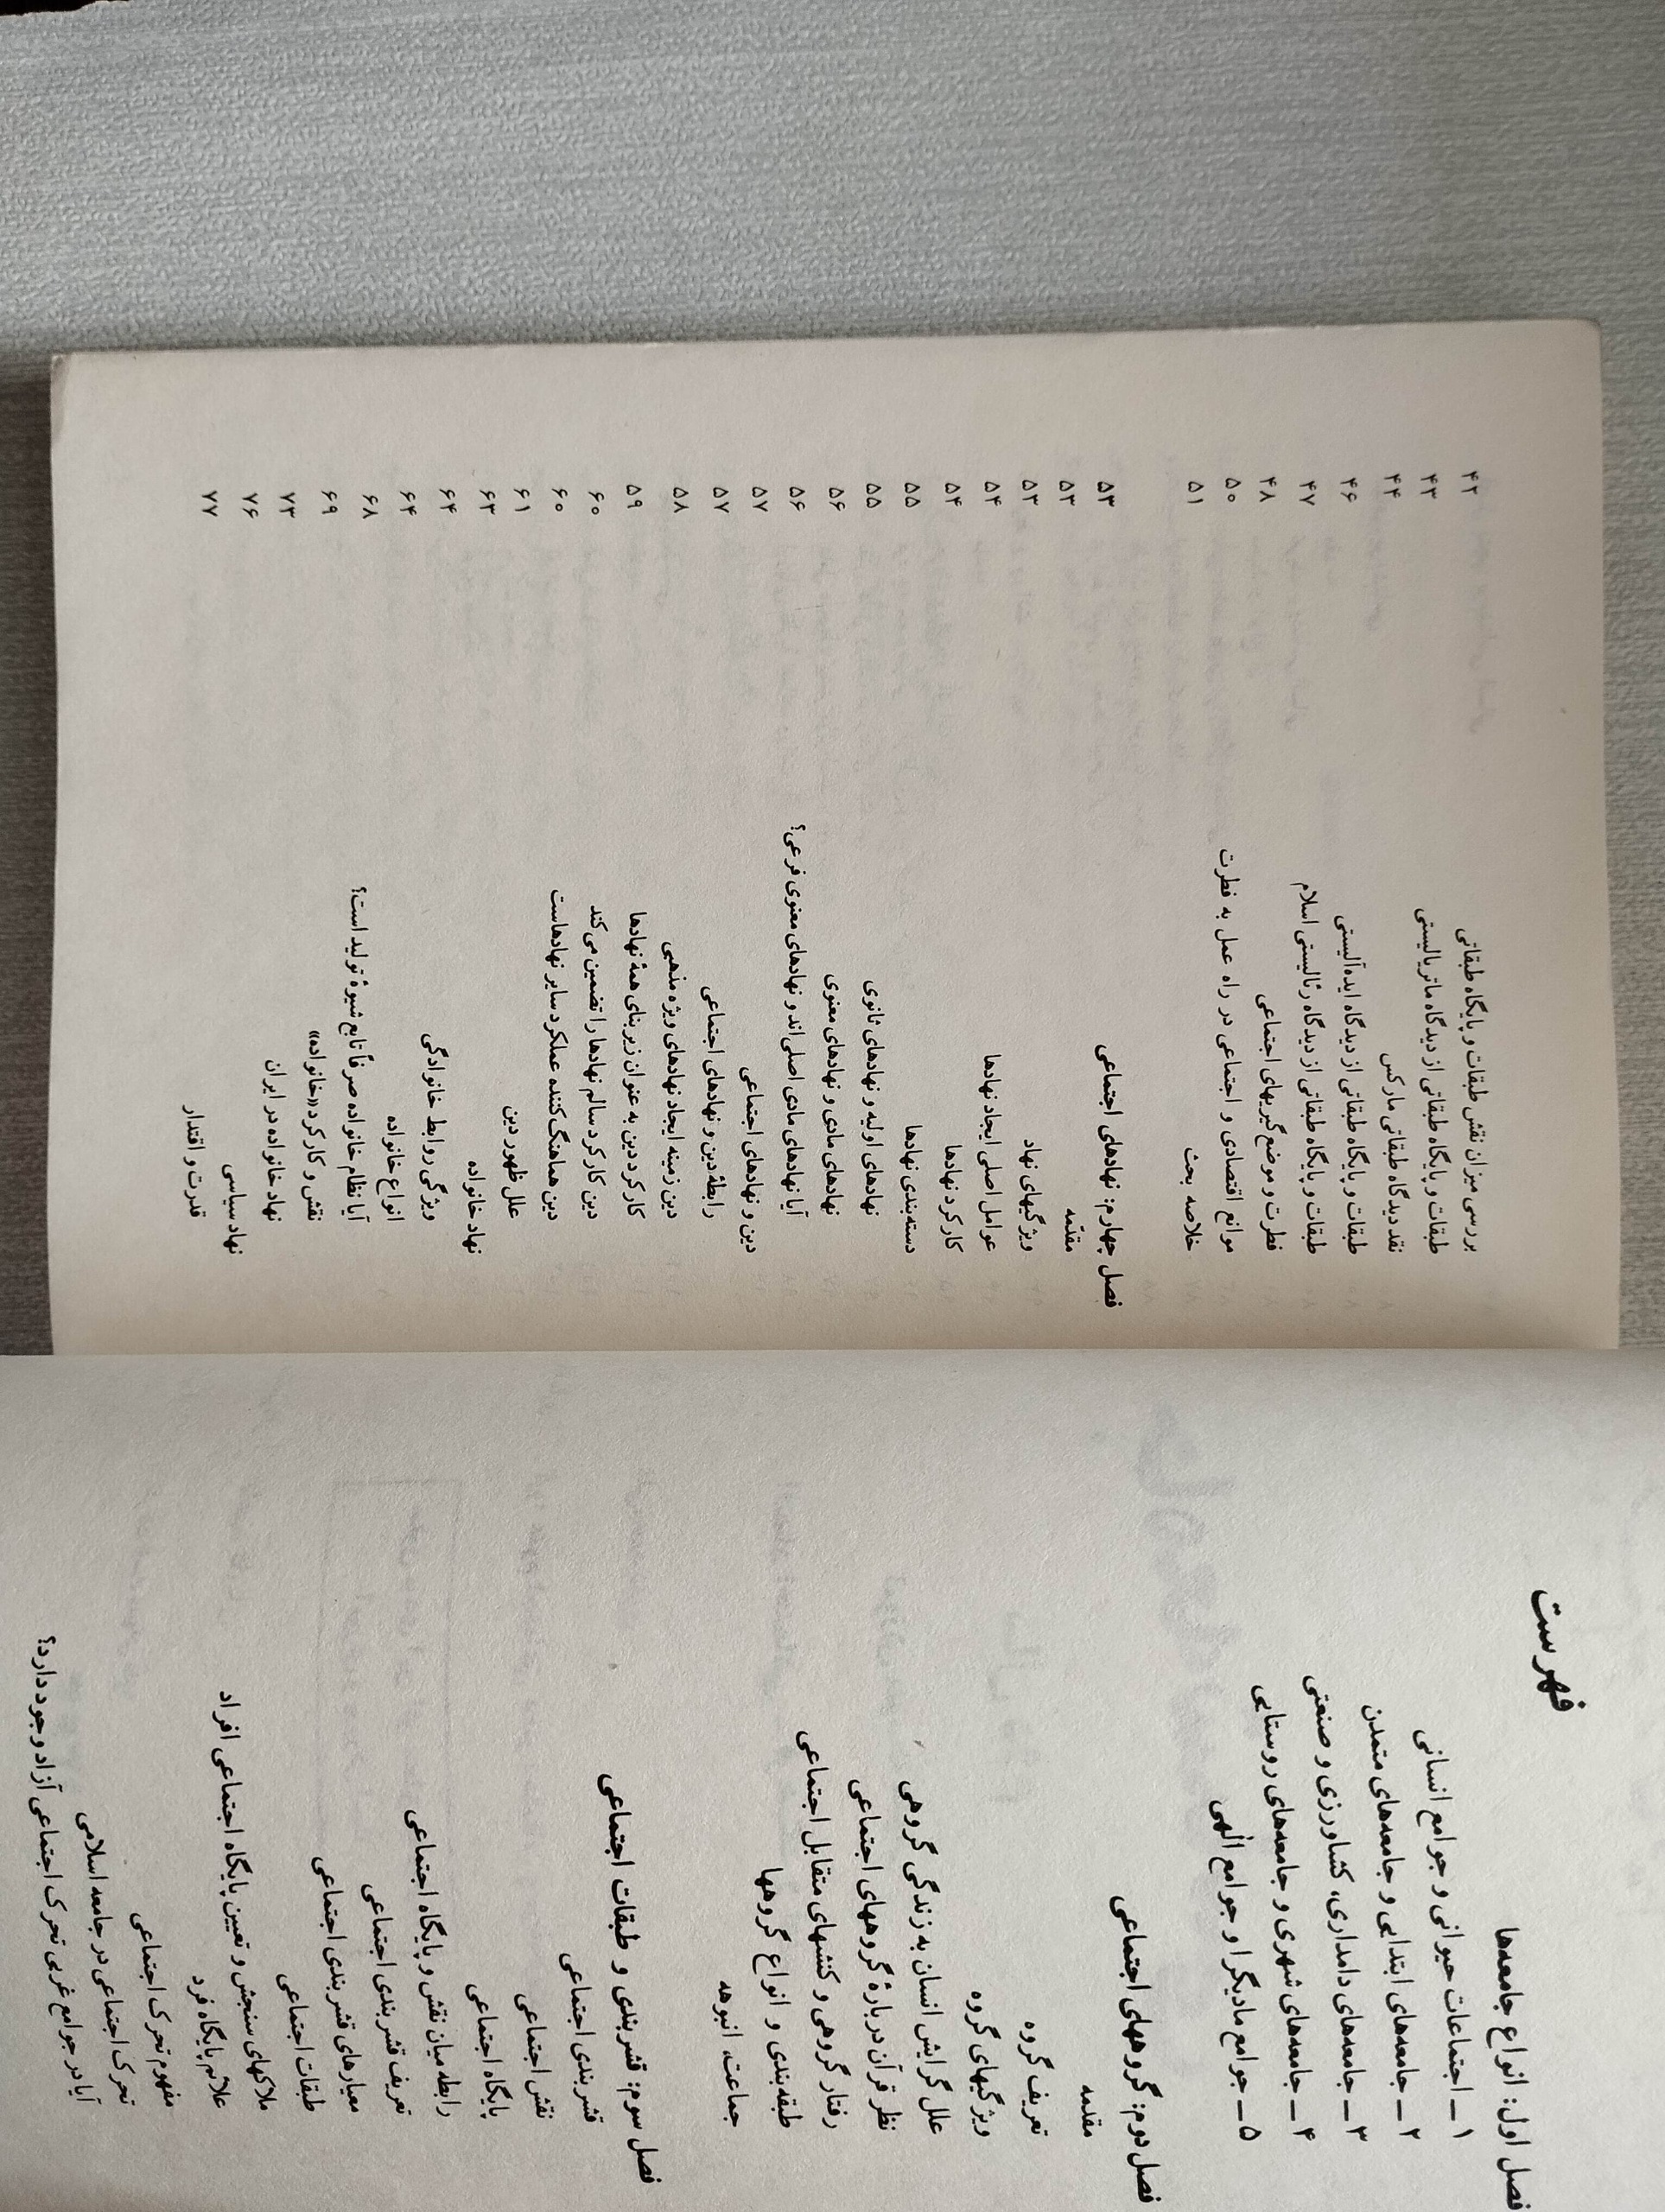 فهرست
فصل اول: انواع جامعه‌ها
۱ ـ اجتماعات حیوانی و جوامع انسانی
۲ ـ جامعه‌های ابتدایی و جامعه‌های متمدن
۳ ـ جامعه‌های دامداری، کشاورزی و صنعتی
۴ ـ جامعه‌های شهری و جامعه‌های روستایی
۵ ـ جوامع مادیگرا و جوامع الهی
فصل دوم: گروههای اجتماعی
مقدمه
تعریف گروه
ویژگیهای گروه
علل گرایش انسان به زندگی گروهی
نظر قرآن دربارهٔ گروههای اجتماعی
رفتار گروهی و کنشهای متقابل اجتماعی
طبقه‌بندی و انواع گروهها
جماعت، انبوهه
فصل سوم: قشربندی و طبقات اجتماعی
قشربندی اجتماعی
نقش اجتماعی
پایگاه اجتماعی
رابطه میان نقش و پایگاه اجتماعی
تعریف قشربندی اجتماعی
معیارهای قشربندی اجتماعی
طبقات اجتماعی
ملاکهای سنجش و تعیین پایگاه اجتماعی افراد
علائم پایگاه فرد
مفهوم تحرک اجتماعی
تحرک اجتماعی در جامعه اسلامی
آیا در جوامع غربی تحرک اجتماعی آزاد وجود دارد؟
بررسی میزان نقش طبقات و پایگاه طبقاتی ۴۲
طبقات و پایگاه طبقاتی از دیدگاه ماتریالیستی ۴۳
نقد دیدگاه طبقاتی مارکس ۴۴
طبقات و پایگاه طبقاتی از دیدگاه ایده‌آلیستی ۴۶
طبقات و پایگاه طبقاتی از دیدگاه رئالیستی اسلام ۴۷
فطرت و موضع‌گیریهای اجتماعی ۴۸
موانع اقتصادی و اجتماعی در راه عمل به فطرت ۵۰
خلاصه بحث ۵۱
فصل چهارم: نهادهای اجتماعی ۵۳
مقدّمه ۵۳
ویژگیهای نهاد ۵۳
عوامل اصلی ایجاد نهادها ۵۴
کارکرد نهادها ۵۴
دسته‌بندی نهادها ۵۵
نهادهای اولیه و نهادهای ثانوی ۵۵
نهادهای مادی و نهادهای معنوی ۵۶
آیا نهادهای مادی اصلی‌اند و نهادهای معنوی فرعی؟ ۵۶
دین و نهادهای اجتماعی ۵۷
رابطهٔ دین و نهادهای اجتماعی ۵۷
دین زمینه ایجاد نهادهای ویژه مذهبی ۵۸
کارکرد دین به عنوان زیربنای همهٔ نهادها ۵۹
دین کارکرد سالم نهادها را تضمین می‌کند ۶۰
دین هماهنگ‌کننده عملکرد سایر نهادهاست ۶۰
علل ظهور دین ۶۱
نهاد خانواده ۶۳
ویژگی روابط خانوادگی ۶۴
انواع خانواده ۶۴
آیا نظام خانواده صرفاً تابع شیوهٔ تولید است؟ ۶۸
نقش و کارکرد «خانواده» ۶۹
نهاد خانواده در ایران ۷۳
نهاد سیاسی ۷۶
قدرت و اقتدار ۷۷